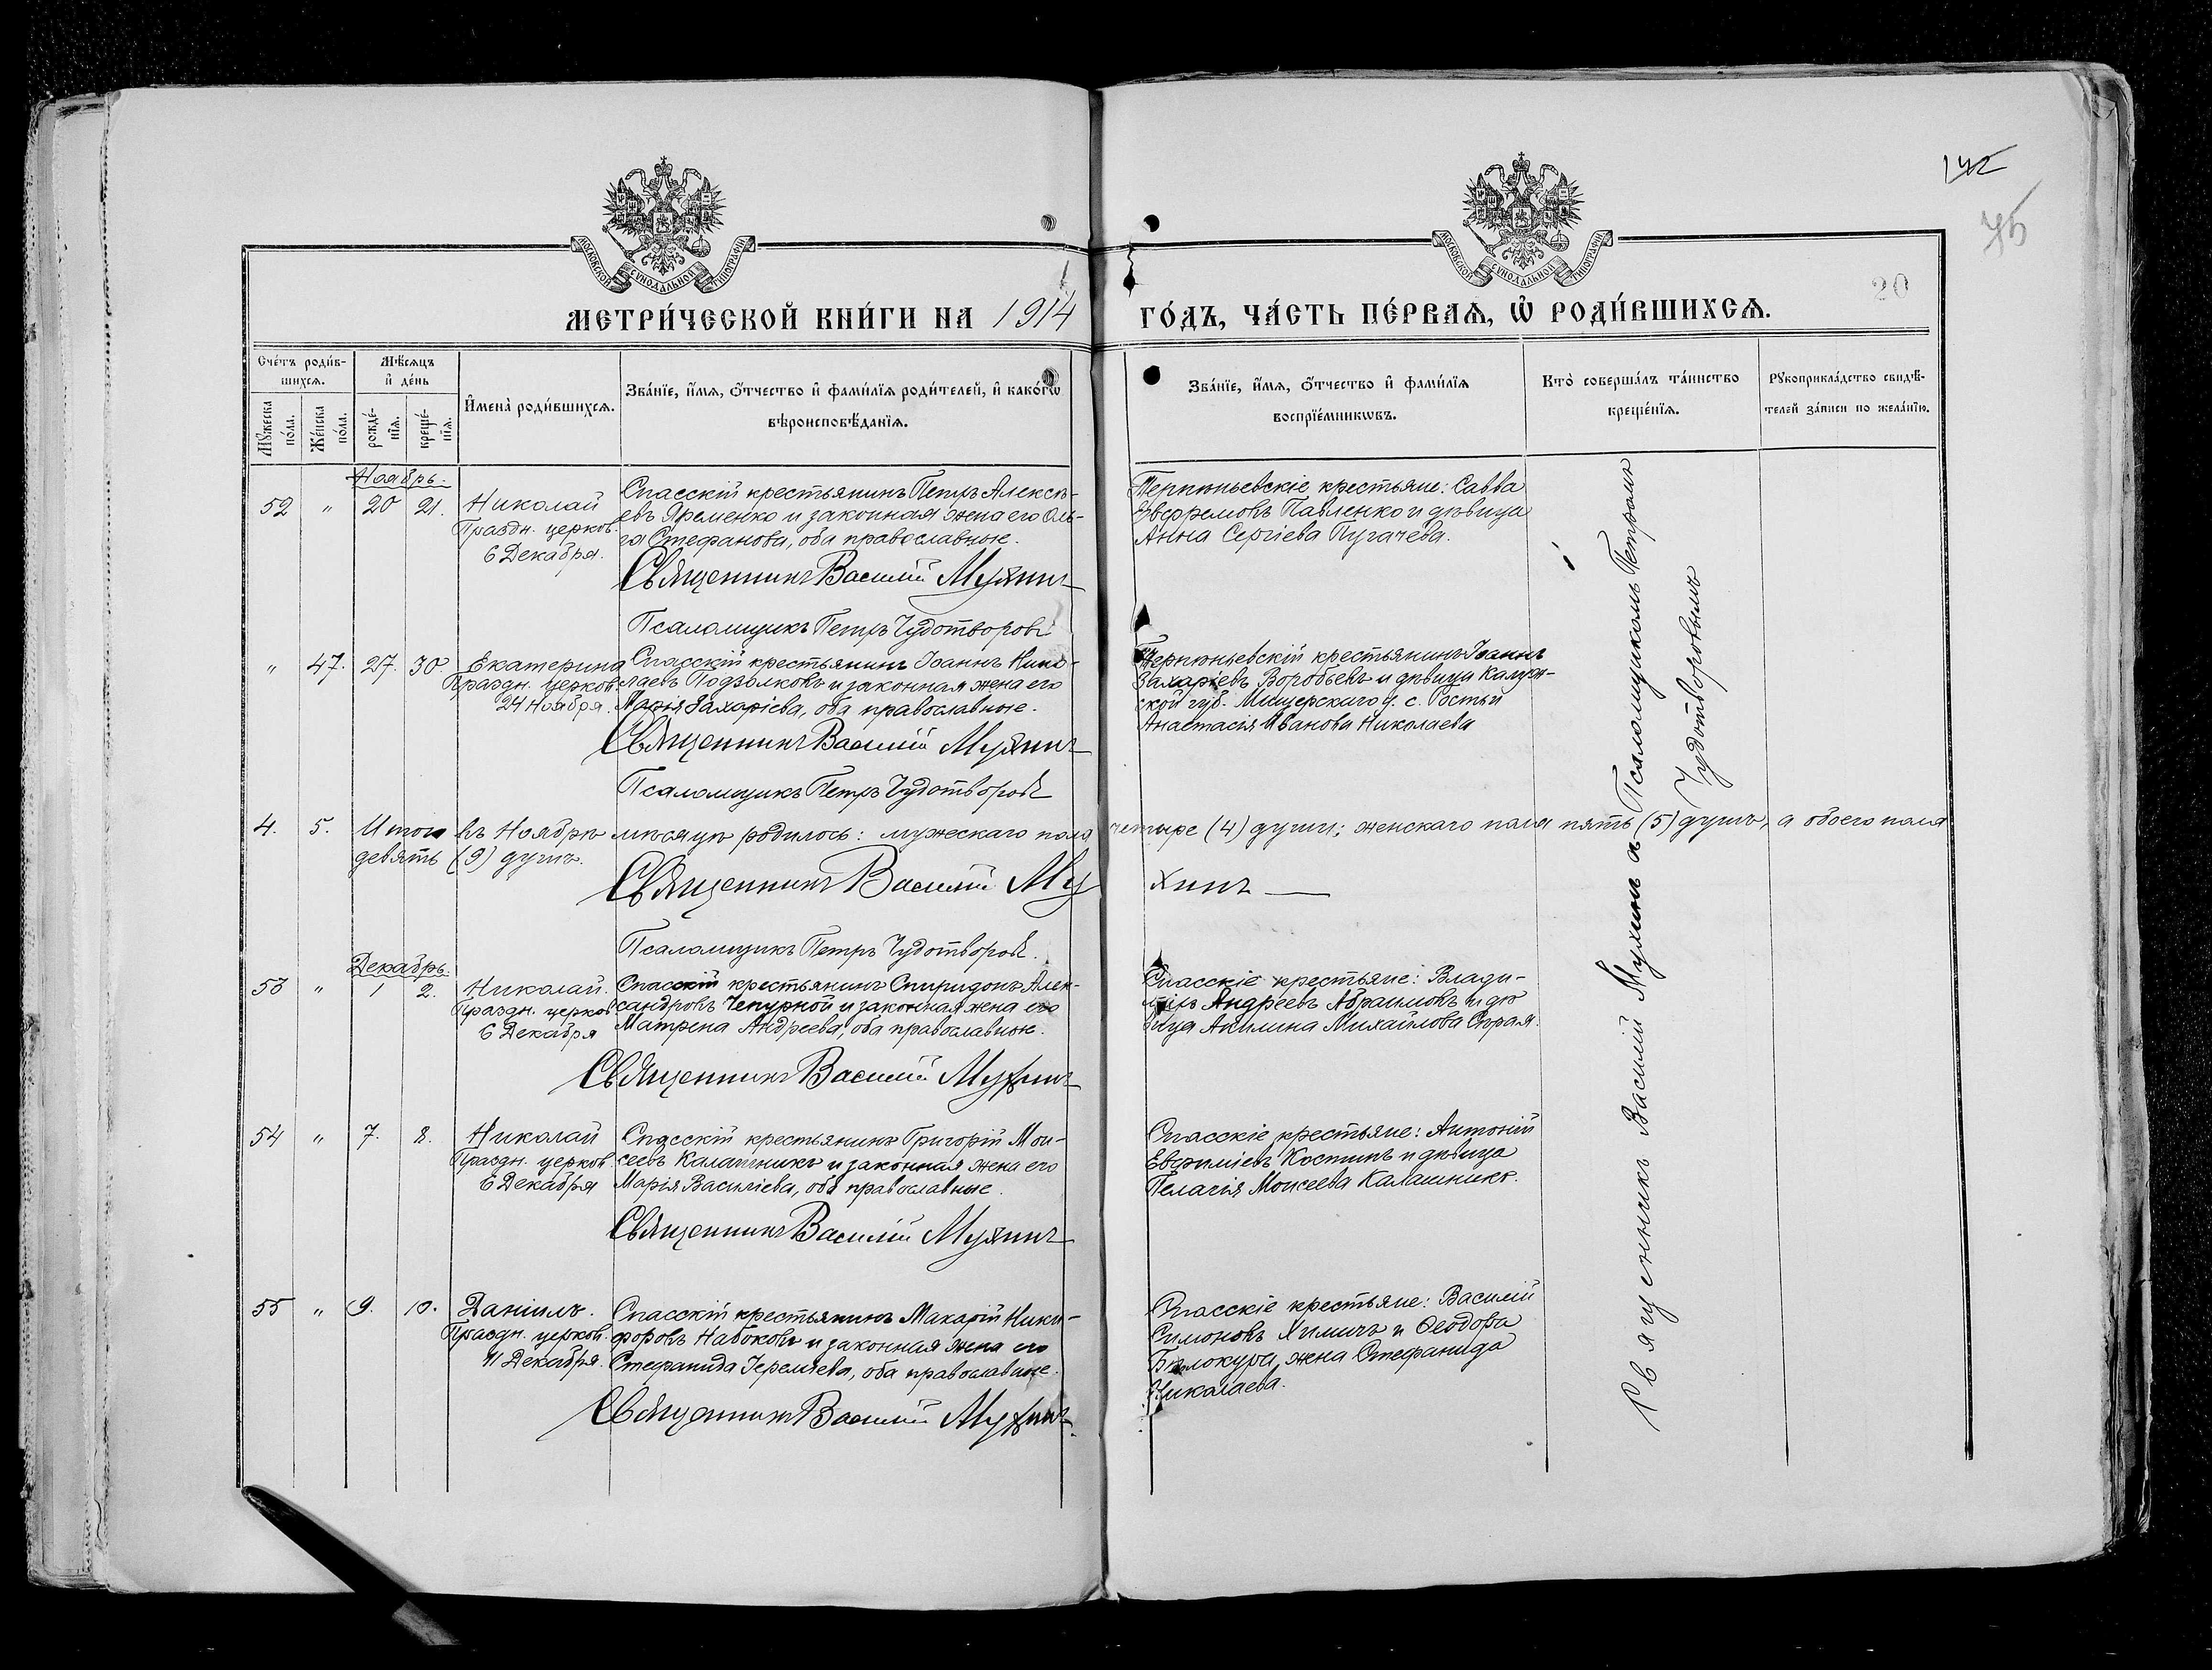 142
75
20
МОСКОВСКОЙ СѴНОДАЛЬНОЙ ТИПОГРАФІИ
МОСКОВСКОЙ СѴНОДАЛЬНОЙ ТИПОГРАФІИ
МЕТРИ́ЧЕСКОЙ КНИ́ГИ НА 1914 ГО́ДЪ, ЧА́СТЬ ПЕ́РВАѦ, Ѡ҆ РОДИ́ВШИХСѦ.
Сче́тъ роди́в-
шихсѧ.
Мꙋ́жеска
по́ла.
Же́нска
по́ла.
Мѣ́сѧцъ
и҆ де́нь
рожде́-
нїѧ.
креще́-
нїѧ.
И҆мена̀ роди́вшихсѧ.
Зва́нїе, и҆́мѧ, ѻ҆́тчество и҆ фами́лїѧ роди́телей, и҆ како́гѡ
вѣроисповѣ́данїѧ.
Зва́нїе, и҆́мѧ, ѻ҆́тчество и҆ фами́лїѧ
воспрїе́мникѡвъ.
Кто̀ соверша́лъ та́инство
креще́нїѧ.
Рꙋкоприкла́дство свидѣ́-
телей за́писи по жела́нїю.
Ноябрь.
52 " 20 21.
Николай
Праздн. церков.
6 Декабря.
Спасскій крестьянинъ Петръ Алексѣ-
евъ Яременко и законная жена его Оль-
га Стефанова, оба православные.
Священникъ Василій Мухинъ
Псаломщикъ Петръ Чудотворовъ
Терпѣньевскіе крестьяне: Савва
Евфремовъ Павленко и дѣвица
Анна Сергіева Пугачева.
" 47. 27. 30
Екатерина
Праздн. церков.
24 Ноября.
Спасскій крестьянинъ Іоаннъ Нико-
лаевъ Подзолковъ и законная жена его
Марія Захаріева, оба православные.
Священникъ Василій Мухинъ
Псаломщикъ Петръ Чудотворовъ
Терпѣньевскій крестьянинъ Іоаннъ
Захаріевъ Воробьевъ и дѣвица Калуж-
ской губ. Мещерскаго у. с.
Анастасія Иванова Николаева
4. 5. Итого въ Ноябрѣ мѣсяцѣ родилось: мужескаго пола четыре (4) души; женскаго пола пять (5) душъ, а обоего пола
девять (9) душъ.
Священникъ Василій Мухинъ
Псаломщикъ Петръ Чудотворовъ.
Декабрь.
53 " 1 2.
Николай.
Праздн. церков.
6 Декабря
Спасскій крестьянинъ Спиридонъ Алек-
сандровъ Чепурной и законная жена его
Матрена Андреева, оба православные.
Священникъ Василій Мухинъ
Спасскіе крестьяне: Влади-
миръ Андреевъ Абраимовъ и дѣ
вица Акилина Михайлова
54 " 7. 8.
Николай
Праздн. церков.
6 Декабря
Спасскій крестьянинъ Григорій Мои-
сеевъ Калашникъ и законная жена его
Марія Василіева, оба православные.
Священникъ Василій Мухинъ
Спасскіе крестьяне: Антоній
Евфиміевъ Костинъ и дѣвица
Пелагія Моисеева Калашникъ.
55 " 9. 10.
Даніилъ.
Праздн. церков.
11 Декабря.
Спасскій крестьянинъ Макарій Ники-
форовъ Набоковъ и законная жена его
Стефанида Іереміева, оба православные.
Священникъ Василій Мухинъ.
Спасскіе крестьяне: Василій
Симоновъ Химичъ и Ѳеодора
Бѣлокура жена Стефанида
Николаева.
Священникъ Василій Мухинъ и Псаломщикомъ Петромъ
Чудотворовымъ